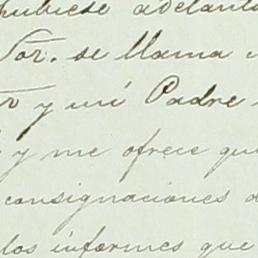 hubiese adelant
Tor. se llama
r y mi Padre
y me ofrece que
consignaciones d
los informes que